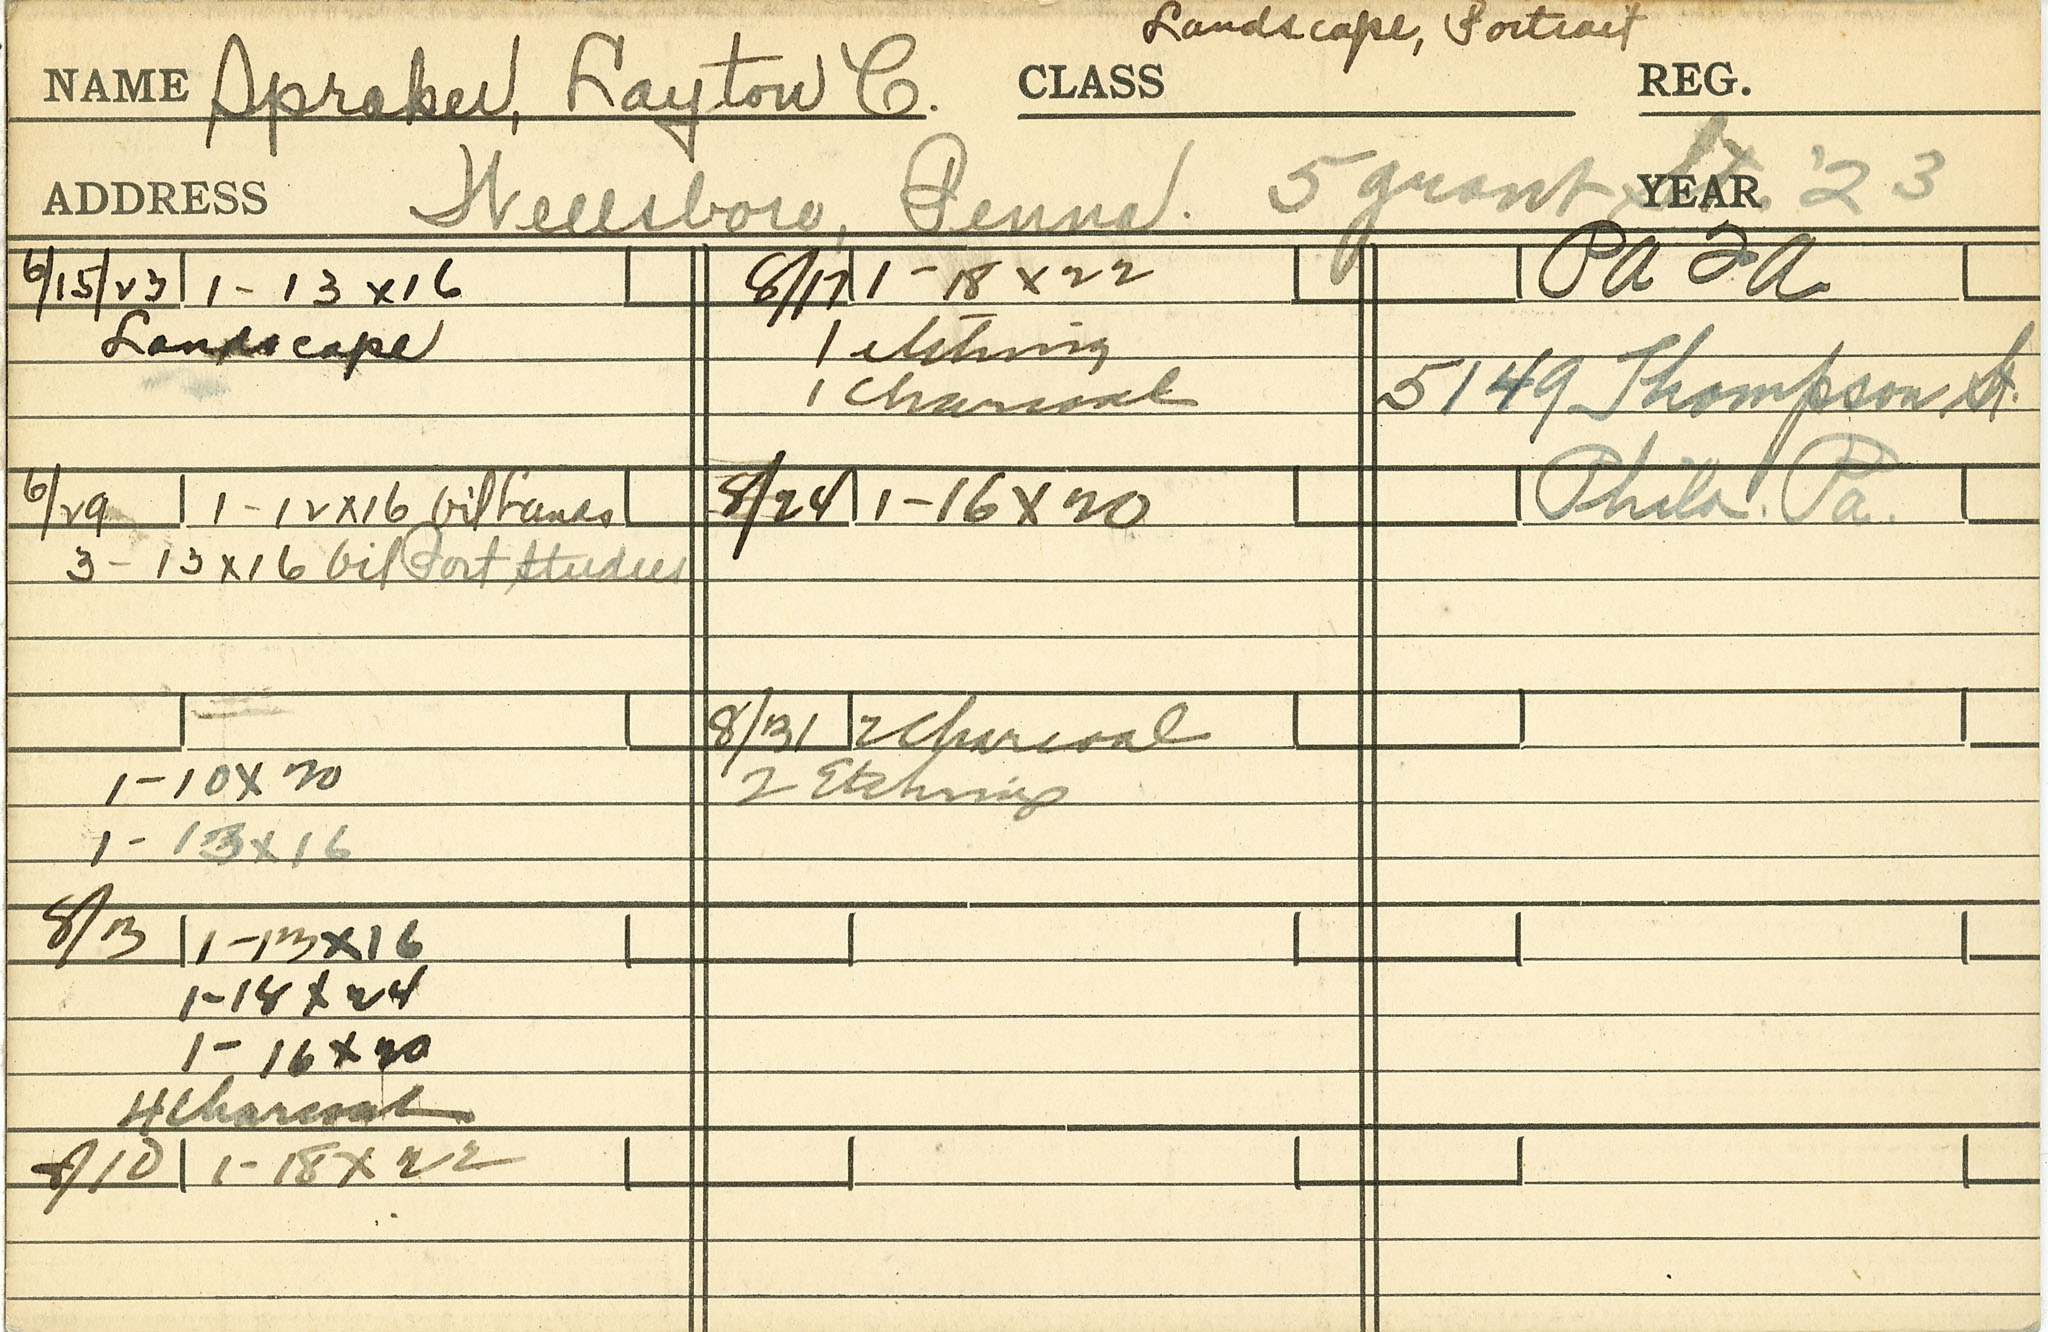 Landscape, Portrait
NAME Spraker, Layton C. CLASS REG.
ADDRESS Wellsboro, Penna. 5 Grant St. YEAR '23
6/15/23 1 - 13 x 16
Landscape
6/29 1 - 12 x 16 Oil Lands
3 - 13 x 16 Oil Port Studies
1 - 10 x 20
1 - 13 x 16
8/3 1 - 13 x 16
1 - 18 x 24
1 - 16 x 20
4 Charcoal
8/10 1 - 18 x 22
8/17 1 - 18 x 22
1 etching
1 Charcoal
8/24 1 - 16 x 20
8/31 2 Charcoal
2 Etchings
Pa F A
5149 Thompson St.
Phila. Pa.